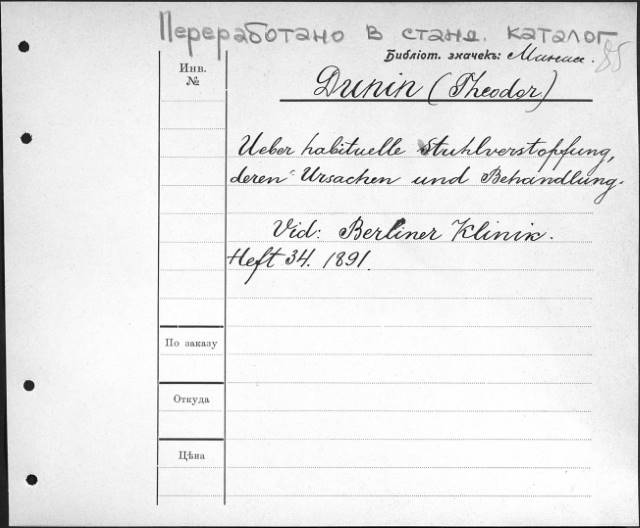 Переработано в станд. каталог
Библіот. значекъ:
85
Инв.
№
Dunin (Theodor)
Ueber habituelle Stuhlverstopfung,
deren Ursachen und Behandlung.
Vid: Berliner Klinik.
Heft 34. 1891.
По заказу
Откуда
Цѣна